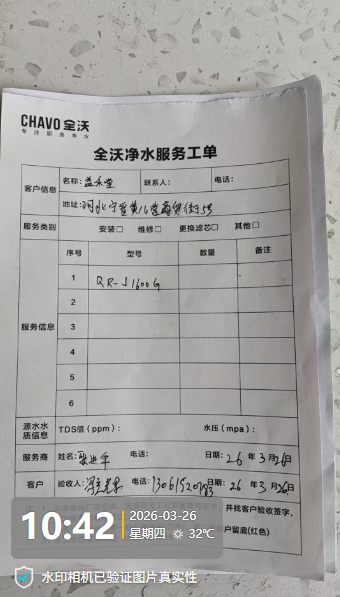 CHAVO 全沃
专注厨房净水
全沃净水服务工单
客户信息
名称：益禾堂
联系人：
电话：
地址：
服务类别
安装□ 维修□ 更换滤芯□ 其他□
服务信息
序号 型号 数量 备注
1 QR-J1600G
2
3
4
5
6
源水水质信息
TDS值（ppm）： 水压（mpa）：
服务商 姓名： 电话： 日期：26年3月26日
客户 验收人： 电话： 日期：26年3月26日
并找客户验收签字，
户留底(红色)
10:42
2026-03-26
星期四 32℃
水印相机已验证图片真实性